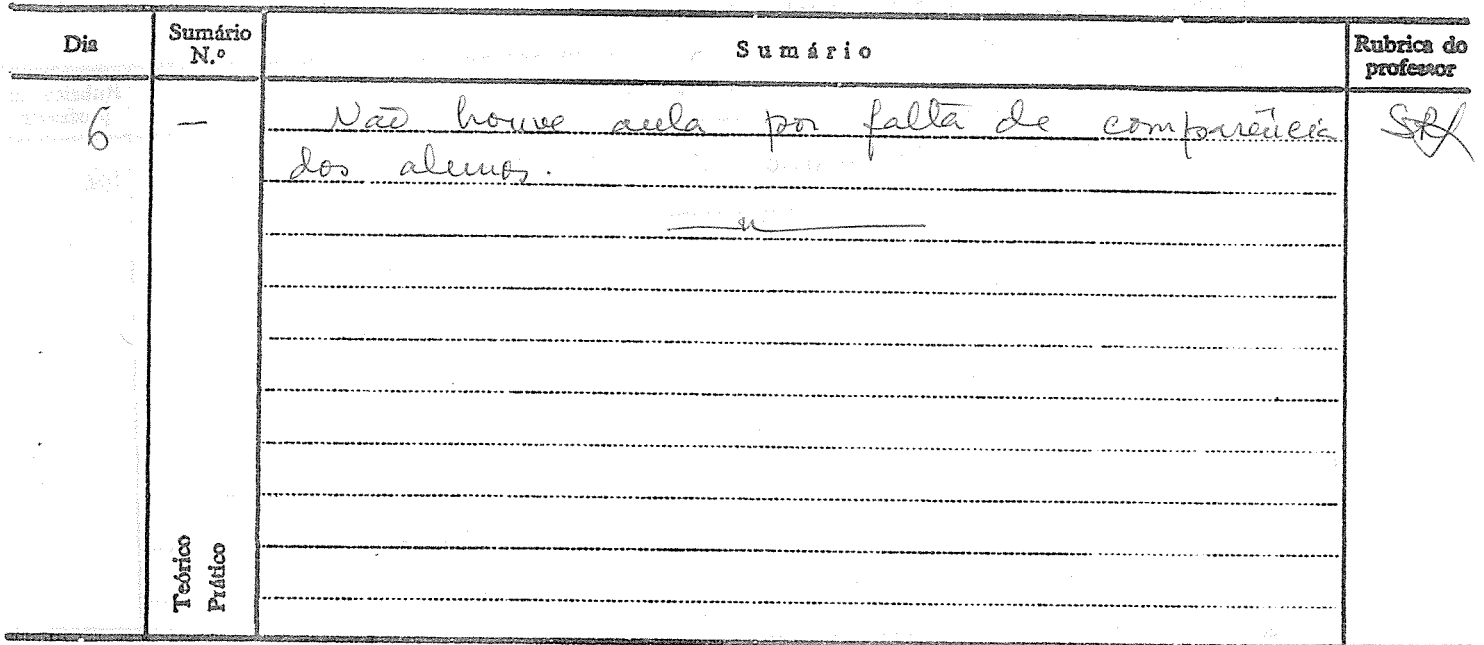 Dia Sumário N.º Sumário Rubrica do professor
6 — Não houve aula por falta de comparência
dos alunos.
Teórico
Prático